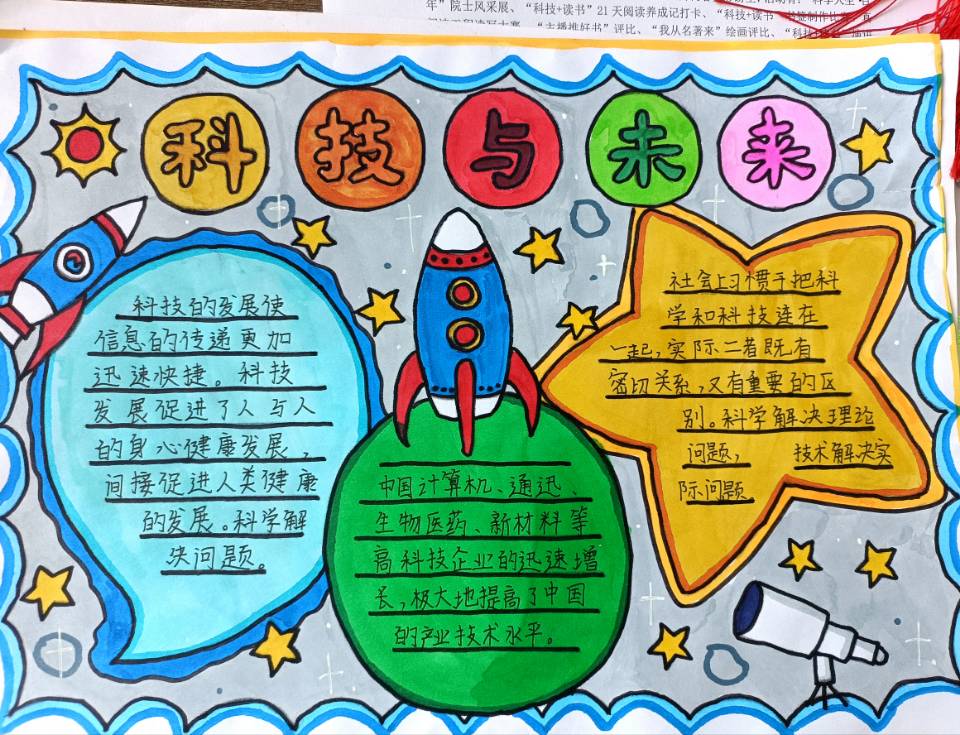 年”院士风采展、“科技+读书”21天阅读养成记打卡、“科技+读书”
“主播推好书”评比、“我从名著来”绘画评比、
科技与未来
科技的发展使
信息的传递更加
迅速快捷。科技
发展促进了人与人
的身心健康发展，
间接促进人类健康
的发展。科学解
决问题。
中国计算机、通迅、
生物医药、新材料等
高科技企业的迅速增
长，极大地提高了中国
的产业技术水平。
社会上习惯于把科
学和科技连在
一起，实际二者既有
密切关系，又有重要的区
别。科学解决理论
问题， 技术解决实
际问题